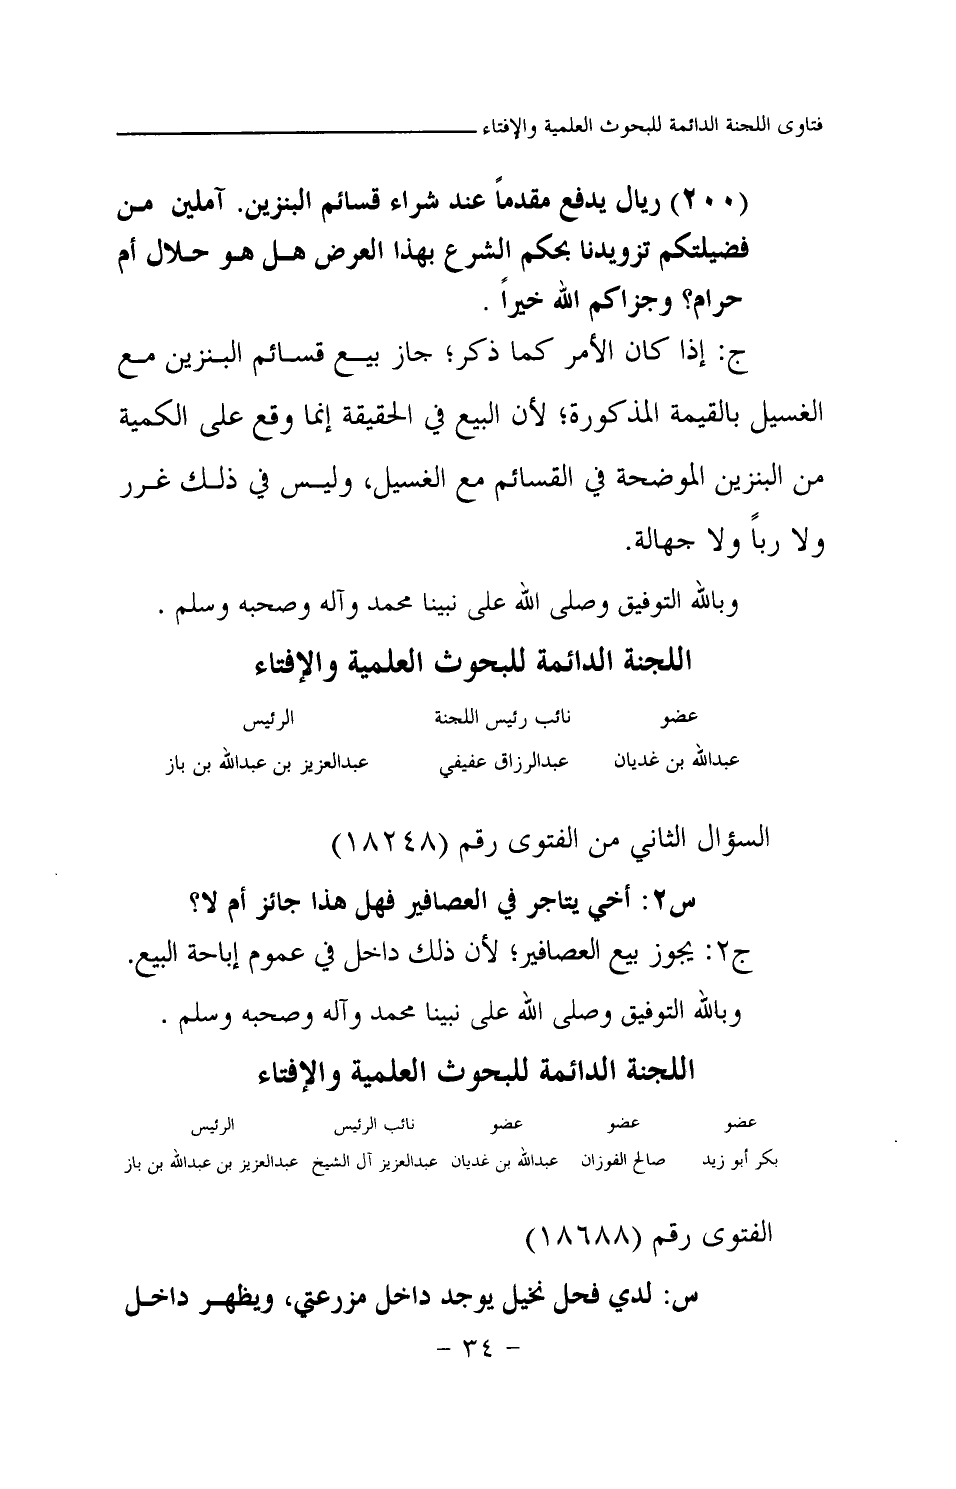 فتاوى اللجنة الدائمة للبحوث العلمية والإفتاء
(٢٠٠) ريال يدفع مقدماً عند شراء قسائم البنزين. آملين من
فضيلتكم تزويدنا بحكم الشرع بهذا العرض هل هو حلال أم
حرام؟ وجزاكم الله خيراً .
ج: إذا كان الأمر كما ذكر؛ جاز بيع قسائم البنزين مع
الغسيل بالقيمة المذكورة؛ لأن البيع في الحقيقة إنما وقع على الكمية
من البنزين الموضحة في القسائم مع الغسيل، وليس في ذلك غرر
ولا رباً ولا جهالة.
وبالله التوفيق وصلى الله على نبينا محمد وآله وصحبه وسلم .
اللجنة الدائمة للبحوث العلمية والإفتاء
عضو نائب رئيس اللجنة الرئيس
عبدالله بن غديان عبدالرزاق عفيفي عبدالعزيز بن عبدالله بن باز
السؤال الثاني من الفتوى رقم (١٨٢٤٨)
س٢: أخي يتاجر في العصافير فهل هذا جائز أم لا؟
ج٢: يجوز بيع العصافير؛ لأن ذلك داخل في عموم إباحة البيع.
وبالله التوفيق وصلى الله على نبينا محمد وآله وصحبه وسلم .
اللجنة الدائمة للبحوث العلمية والإفتاء
عضو عضو عضو نائب الرئيس الرئيس
بكر أبو زيد صالح الفوزان عبدالله بن غديان عبدالعزيز آل الشيخ عبدالعزيز بن عبدالله بن باز
الفتوى رقم (١٨٦٨٨)
س: لدي فحل نخيل يوجد داخل مزرعتي، ويظهر داخل
- ٣٤ -